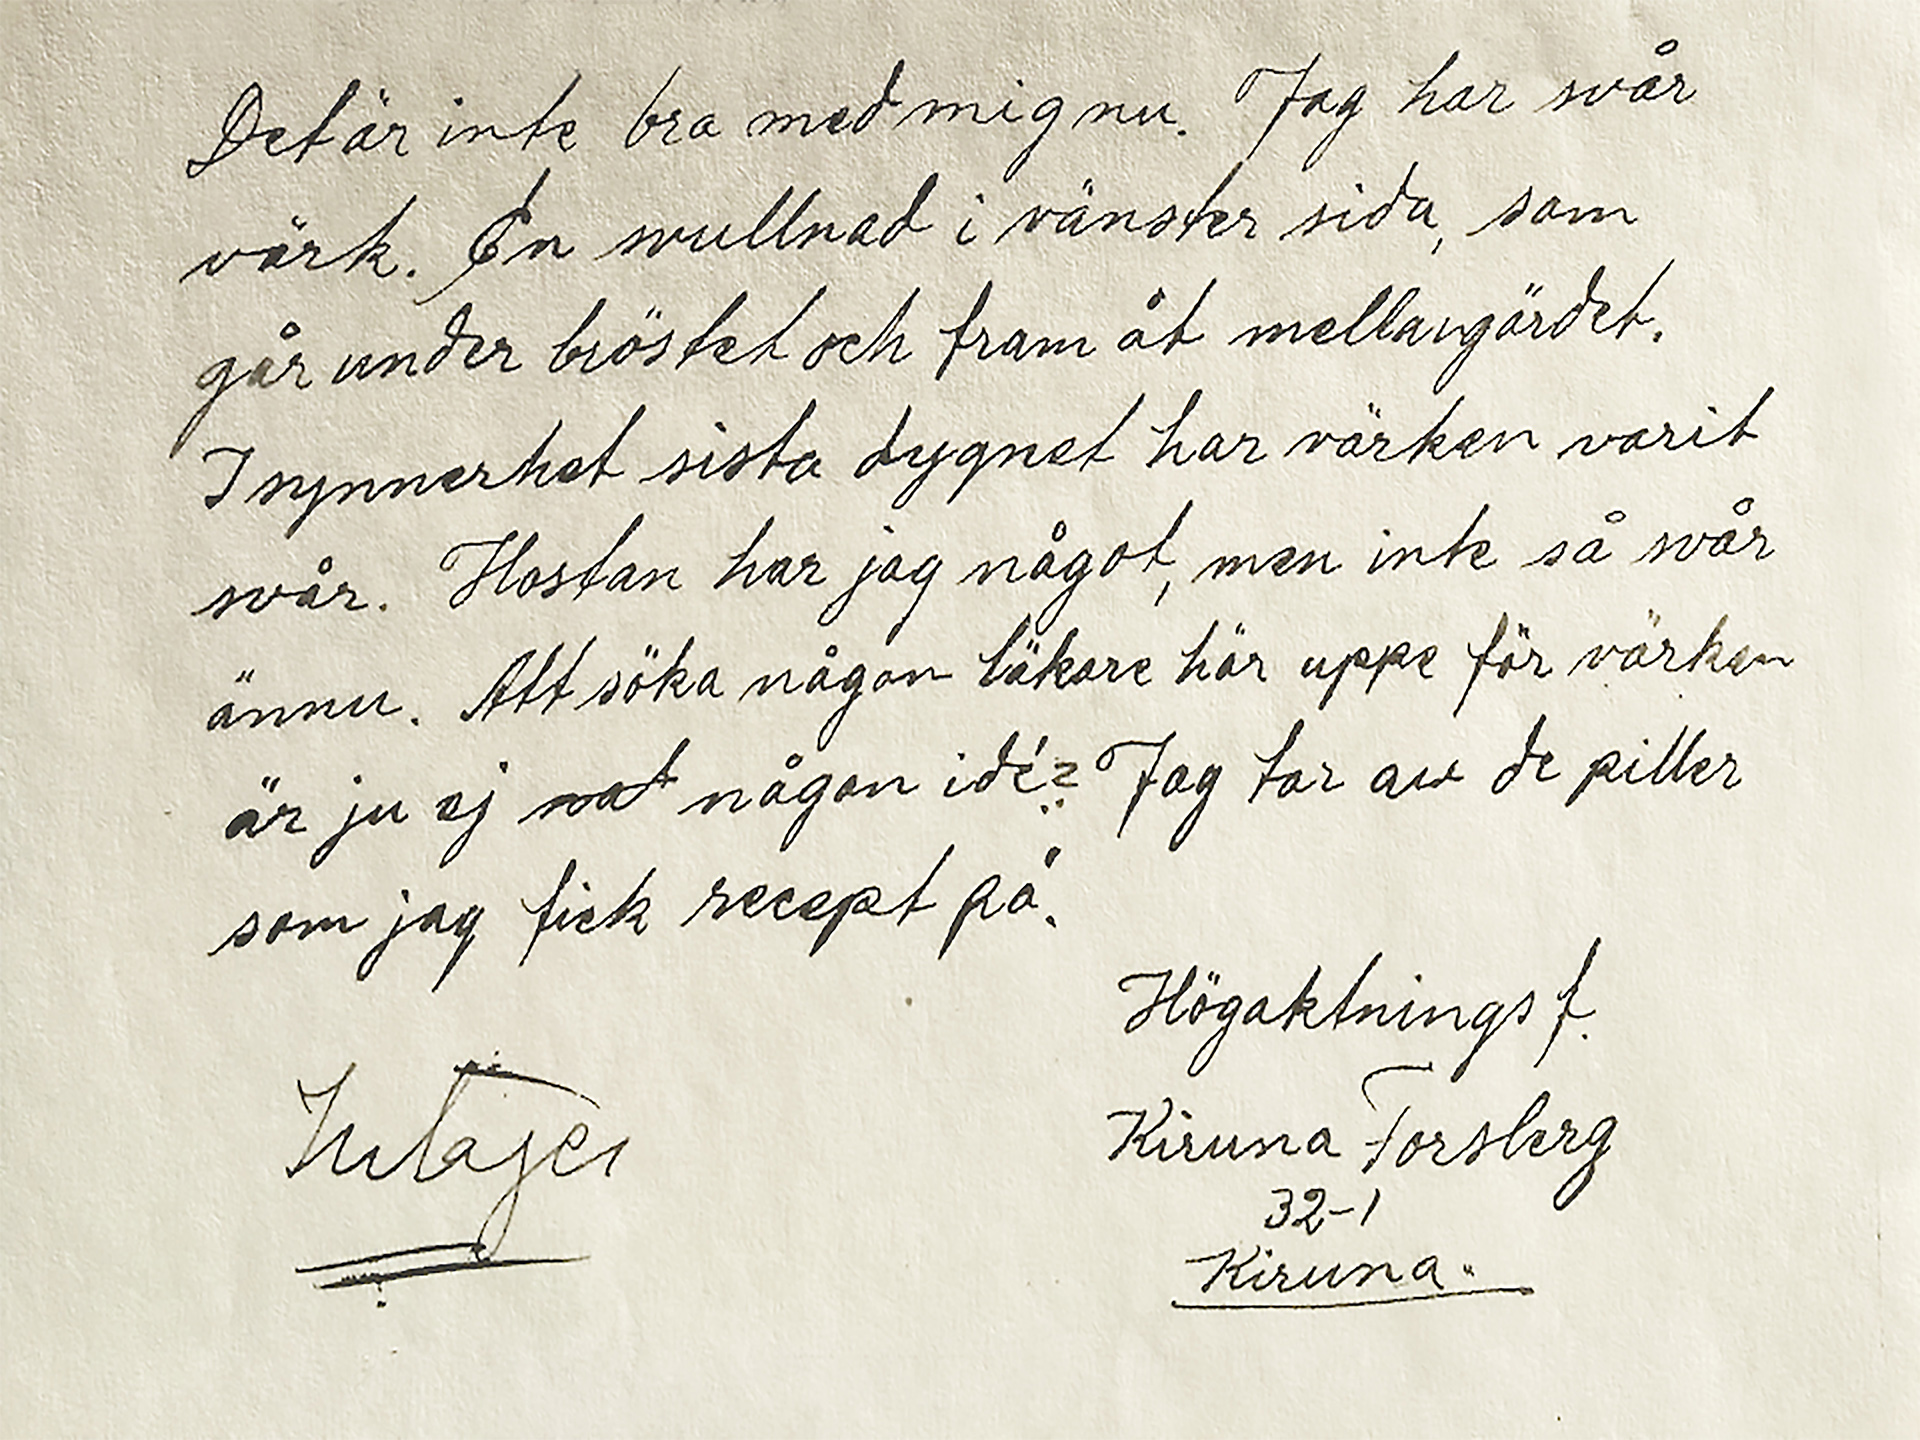 Det är inte bra med mig nu. Jag har svår
värk. En svullnad i vänster sida, som
går under bröstet och fram åt mellangärdet.
I synnerhet sista dygnet har värken varit
svår. Hostan har jag något, men inte så svår
ännu. Att söka någon läkare här uppe för värken
är ju ej någon idé? Jag tar av de piller
som jag fick recept på.
Högaktningsf.
Kiruna Forsberg
32-1
Kiruna.